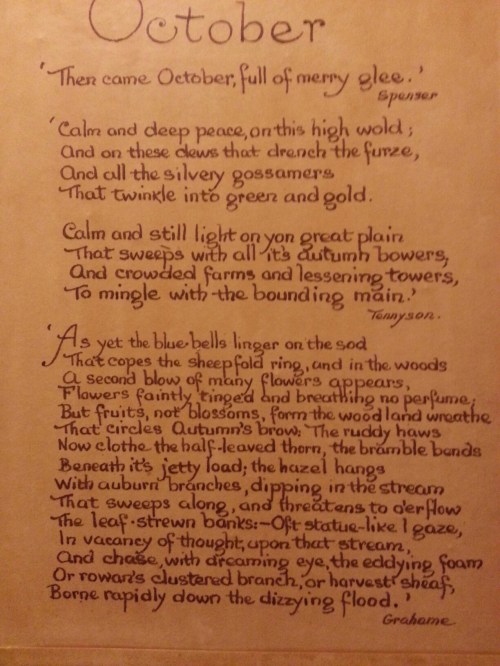 October
'Then came October, full of merry glee.'
Spenser
'Calm and deep peace, on this high wold;
And on these dews that drench the furze,
And all the silvery gossamers
That twinkle into green and gold.
Calm and still light on yon great plain
That sweeps with all it's autumn bowers,
And crowded farms and lessening towers,
To mingle with the bounding main.'
Tennyson.
'As yet the blue-bells linger on the sod
That copes the sheepfold ring, and in the woods
A second blow of many flowers appears,
Flowers faintly tinged and breathing no perfume;
But fruits, not blossoms, form the woodland wreathe
That circles Autumn's brow; The ruddy haws
Now clothe the half-leaved thorn, the bramble bends
Beneath it's jetty load; the hazel hangs
With auburn branches, dipping in the stream
That sweeps along, and threatens to o'erflow
The leaf-strewn banks:- Oft statue-like I gaze,
In vacancy of thought, upon that stream,
And chase, with dreaming eye, the eddying foam
Or rowan's clustered branch, or harvest sheaf,
Borne rapidly down the dizzying flood.'
Grahame